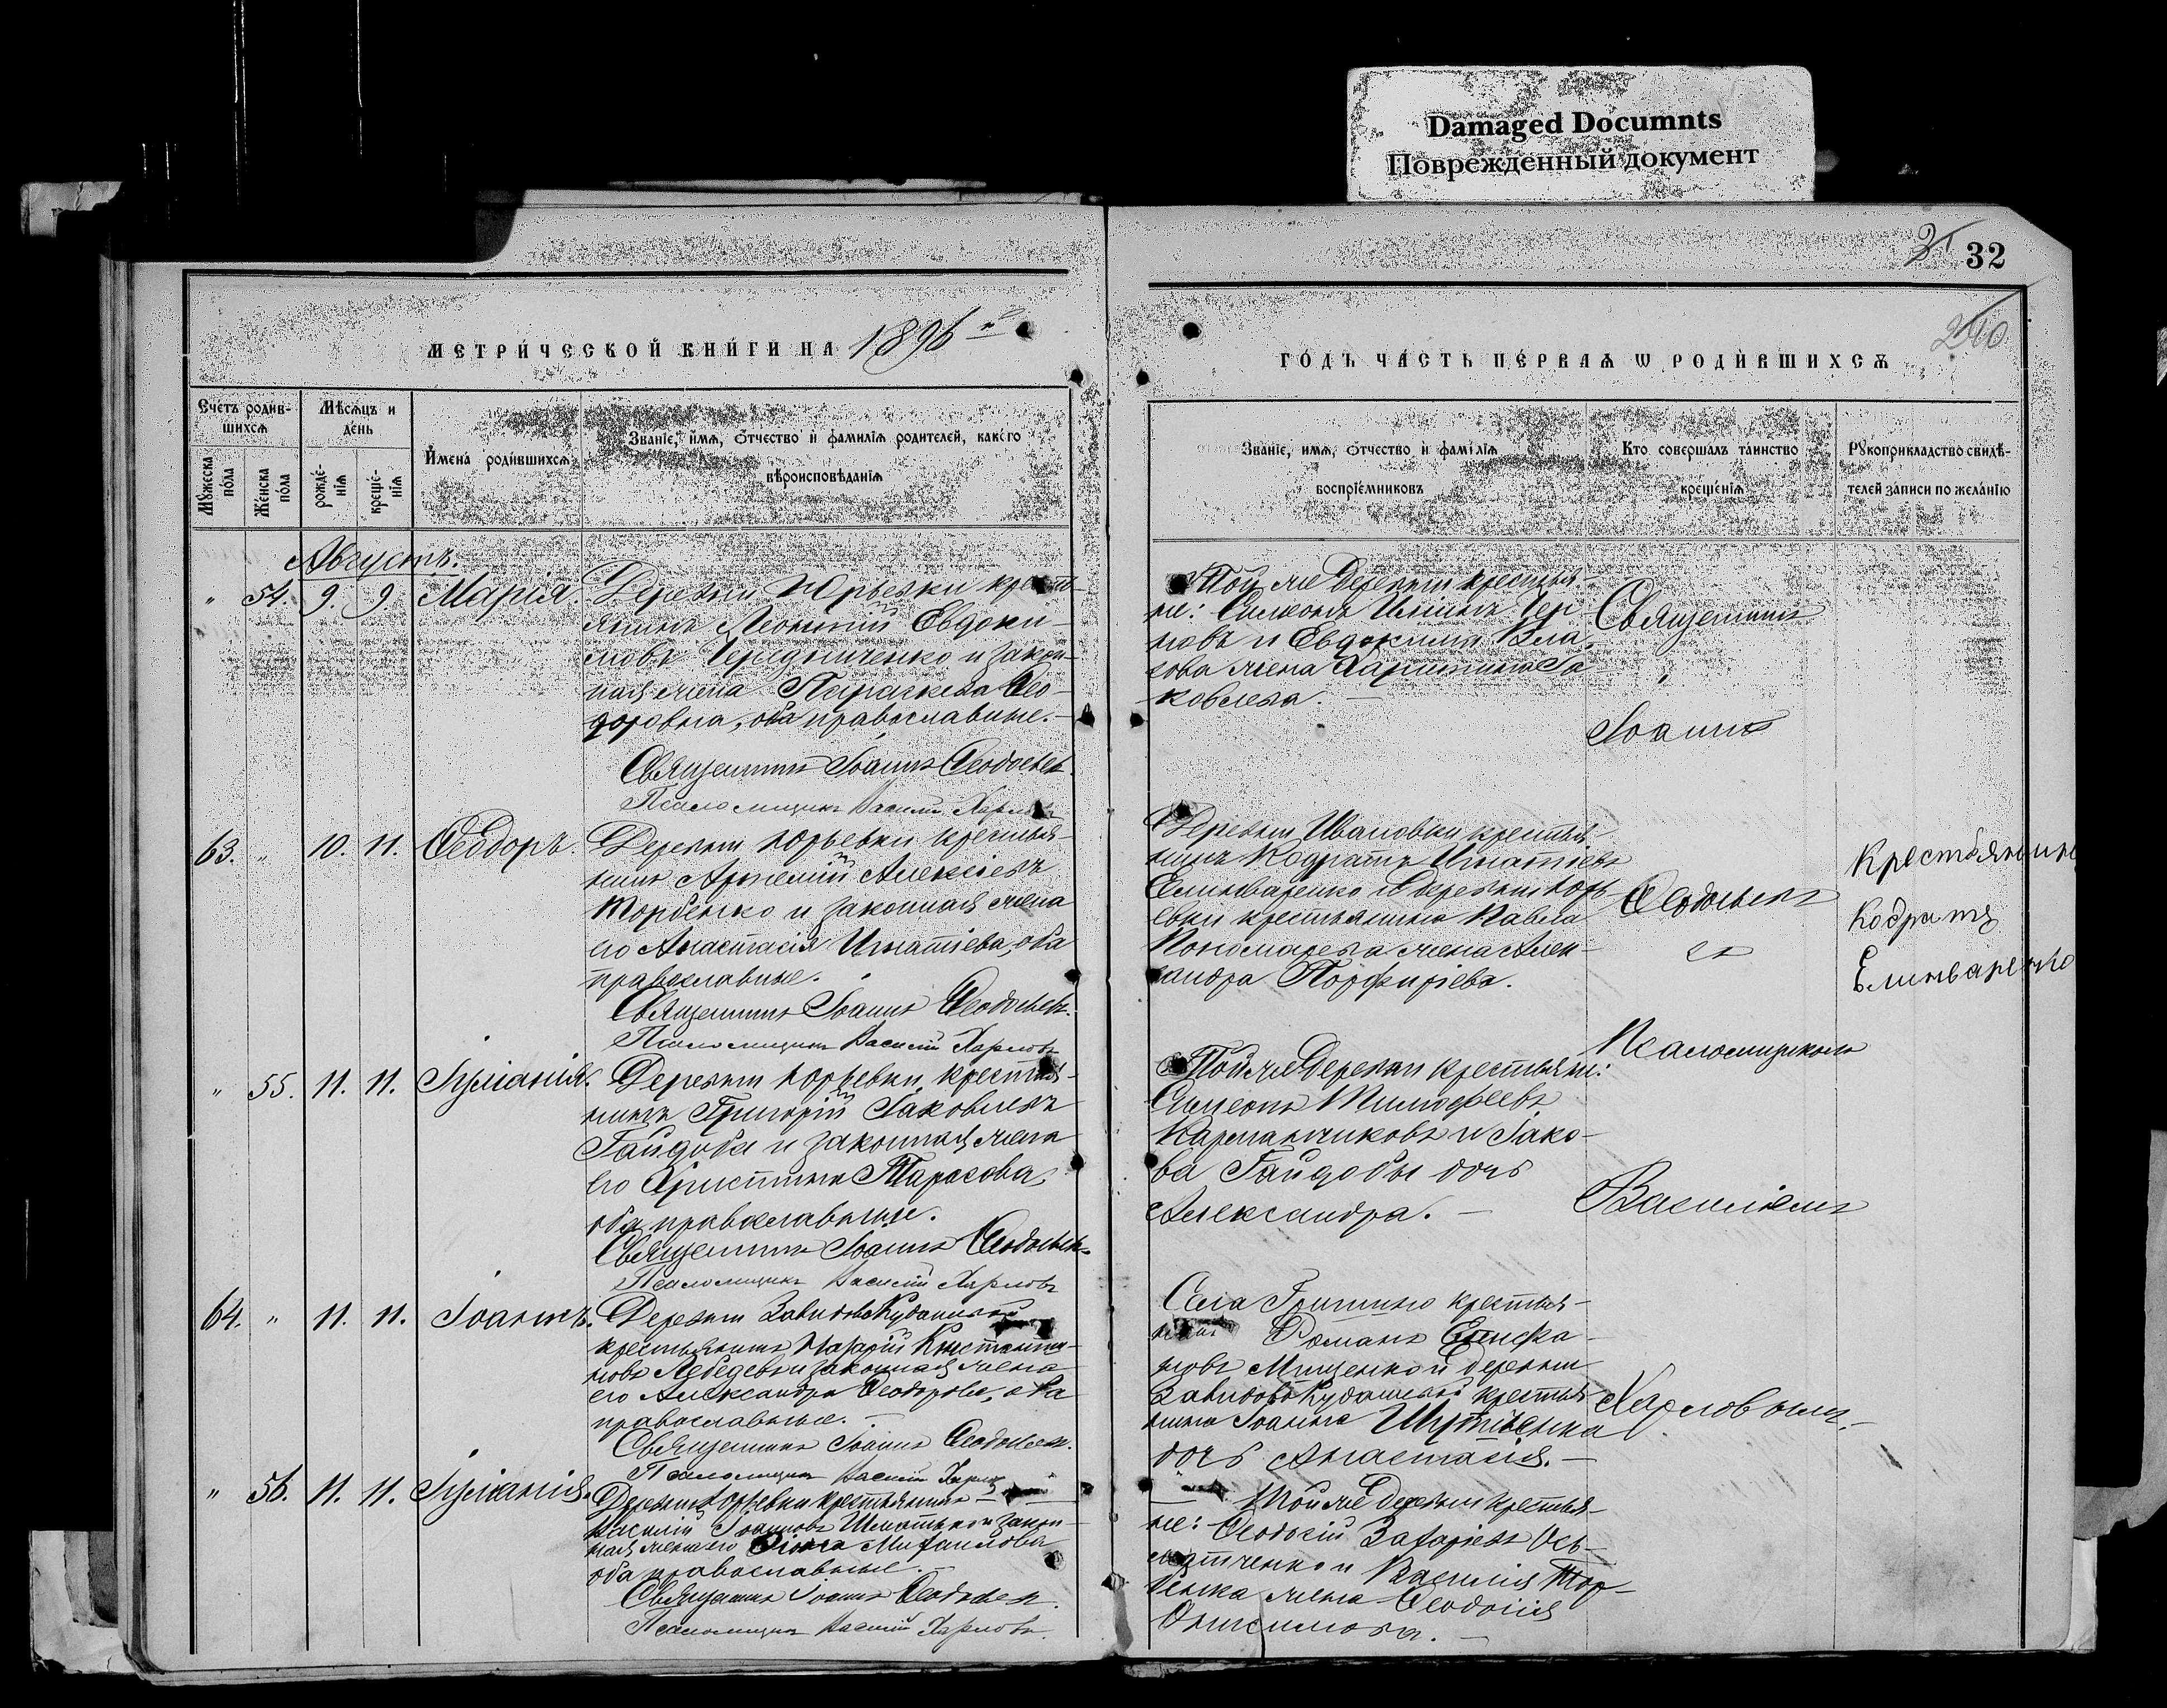 Damaged Documnts
Поврежденный документ
32
210
МЕТРИ́ЧЕСКОЙ КНИ́ГИ НА 1896 й
ГО́ДЪ ЧА́СТЬ ПЕ́РВАѦ Ѡ РОДИ́ВШИХСѦ
Счетъ родив-
шихсѧ
Мѣсѧцъ и
день
Имена родившихсѧ
Званіе, имѧ, отчество и фамиліѧ родителей, какого
вѣроисповѣданіѧ
Мꙋжеска пола
Женска пола
рожде-
ніѧ
креще-
ніѧ
Званіе, имѧ, отчество и фамиліѧ
воспріемниковъ
Кто совершалъ таинство
крещеніѧ
Рꙋкоприкладство свидѣ-
телей записи по желанію
Августъ.
" 54. 9. 9. Марія.
Деревни Юрьевки кресть-
янинъ Леонтий Евдоки-
мовъ Чередниченко и закон-
ная жена Параскева Ѳео-
доровна, оба православные.
Священникъ Іоаннъ Ѳеодосьев
Псаломщикъ Василий Харловъ
Той же деревни крестья-
не:
новъ и Евдокима
кова жена
ковлева.
Священникъ
Іоаннъ
63. " 10. 11. Ѳеодоръ.
Деревни Юрьевки крестья-
нинъ Артемий Алексіевъ
Торбенко и законная жена
его Анастасія Игнатіева, оба
православные.
Священникъ Іоаннъ Ѳеодосьев.
Псаломщикъ Василий Харловъ
Деревни Ивановки крестья-
нинъ Кодратъ Игнатіевъ
Елинваренко и деревни Юрь-
евки крестьянина Павла
Пономарева жена Алек-
сандра Порфиріева.
Ѳеодосьевъ
съ
Крестьянинъ
Кодратъ
Елинваренко
" 55. 11. 11. Іуліанія.
Деревни Юрьевки крестья-
нинъ Григорій Іаковлевъ
Гайдоба и законная жена
его Христина Тарасова,
оба православные.
Священникъ Іоаннъ Ѳеодосьев.
Псаломщикъ Василий Харловъ
Той же деревни крестьяне:
Симеонъ Тимофеевъ
Карманчиковъ и Іако-
ва Гайдобы дочь
Александра.
Псаломщикомъ
Василіемъ
64. " 11. 11. Іоаннъ.
Деревни Завидово Кудашевой
крестьянинъ Назарій Константи-
новъ Лебедевъ и законная жена
его Александра Ѳеодорова, оба
православные.
Священникъ Іоаннъ Ѳеодосьев.
Псаломщикъ Василий Харловъ
Села Гришино крестья-
нинъ Романъ Епифа-
новъ Мищенко и деревни
Завидово Кудашевой крестья-
нина Іоанна
дочь Анастасія.
Харловымъ.
" 56. 11. 11. Іуліанія.
Деревни Юрьевки крестьянинъ
Василій Іоанновъ и закон-
ная жена его Михаилова
оба православные.
Священникъ Іоаннъ Ѳеодосьев.
Псаломщикъ Василий Харловъ.
Той же деревни крестья-
не: Захаріевъ Ось-
мятченко и Василия Тор-
бенка жена Ѳеодосія
Онисимова.